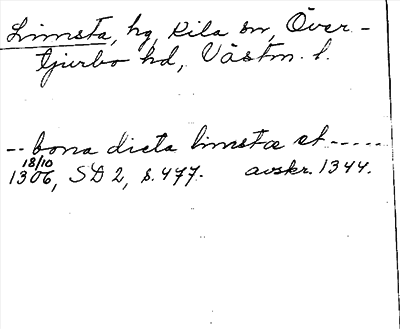 Limsta, hg, Kila sn, Över-
tjurbo hd, Västm. l.
-- bona dicta limstæ et -----
18/10
1306, SD 2, s. 477. avskr. 1344.